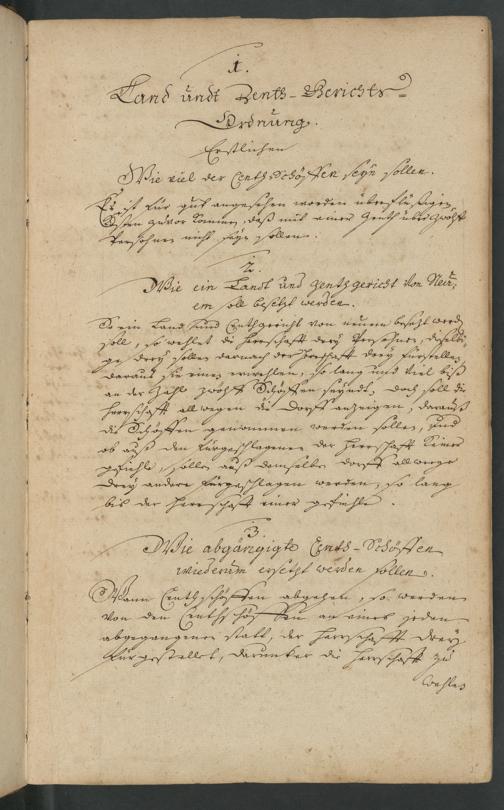 1.
Land undt Zenth-Gerichts-
Ordnung.
Erstlichen
Wie viel der Centh Schöffen seyn sollen.
Es ist für gut angesehen worden überflüßigen
Kosten zuvor kommen, daß mit einer Zenth über zwölff
Persohnen nicht seyn sollen.
2.
Wie ein Landt und Zenthgericht von Neu-
em soll besetzt werden.
So ein Land und Centhgericht von neuem besetzt werden
soll, so wehlet die Herrschafft drey Persohnen, dieselbi-
ge drey sollen darnach der Herrschafft drey fürstellen,
daraus sie einen erwehlen, so lang und viel biß
an der Zahl zwölff Schöffen seyndt, doch soll die
Herrschafft allwegen die Dorff anzeigen, darauß
die Schöffen genommen werden sollen, und
ob auß den fürgeschlagenen der Herrschafft keiner
gefiehle, sollen auß demselben Dorff allwege
drey andere fürgeschlagen werden, so lang
biß der Herrschafft einer gefiehle.
3.
Wie abgängigte Centh-Schöffen
wiederum ersetzt werden sollen.
Wann Centhschöffen abgehen, so werden
von den Centhschöffen an eines jeden
abgegangenen statt, der Herrschafft drey
fürgestellet, darunter die Herrschafft zu
wehlen